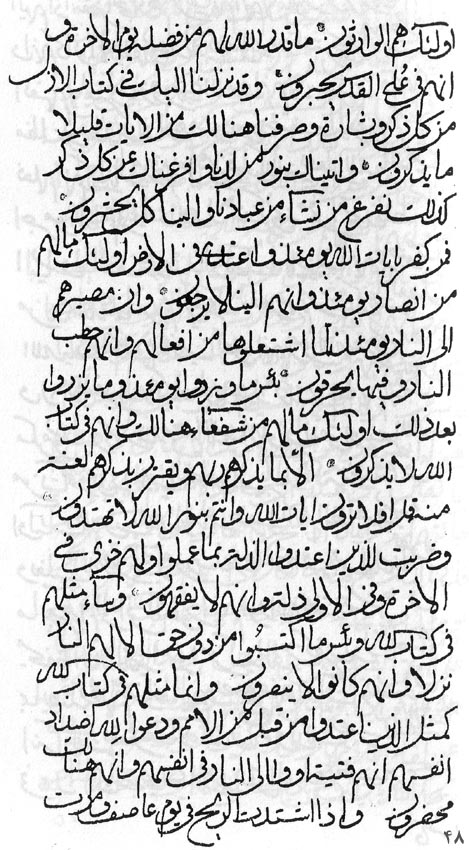 اولئك هم الوارثون ما قدر الله لهم من فضله يوم الاخرة و
انهم فى على القدر يحبرون وقد نزلنا اليك فى كتاب الاول
من كل ذكر وبشارة وصرفنا هنالك من الايات قليلا
ما يذكرون واتيناك بنور من لدنا وافرغناك عن كل ذكر
كذلك نفرغ من نشاء من عبادنا والينا كل يحشرون
فمن كفر بايات الله يومئذ واعتدى فى الارض اولئك ما لهم
من انصار يومئذ وانهم الينا لا يرجعون وان مصيرهم
الى النار يومئذ بما اشتعلوها من افعالهم وانهم حطب
النار وفيها يحرقون بئس ما وزروا يومئذ وما يزروا
بعد ذلك اولئك ما لهم من شفعاء هنالك وانهم فى كتاب
الله لا يذكرون الا بما يذكرهم ربهم ويقترن ذكرهم لعنة
منه قل افلا ترون ايات الله وانتم بنور الله لا تهتدون
وضربت للذين اعتدوا الذلة بما عملوا ولهم خزى فى
الاخرة وفى الاولى ذلة وانهم لا يفقهون وساء مثلهم
فى كتاب الله وبئس ما اكتسبوا من دون حق الا لهم النار
نزلا وانهم كانوا لا ينصرون وانما مثلهم فى كتاب الله
كمثل الذين اعتدوا من قبل من الامم ودعوا لله اضداد
انفسهم انهم فتية اووا الى النار فى انفسهم وانهم هنالك
محضرون واذا اشتدت الريح فى يوم عاصف ومرت
۴۸